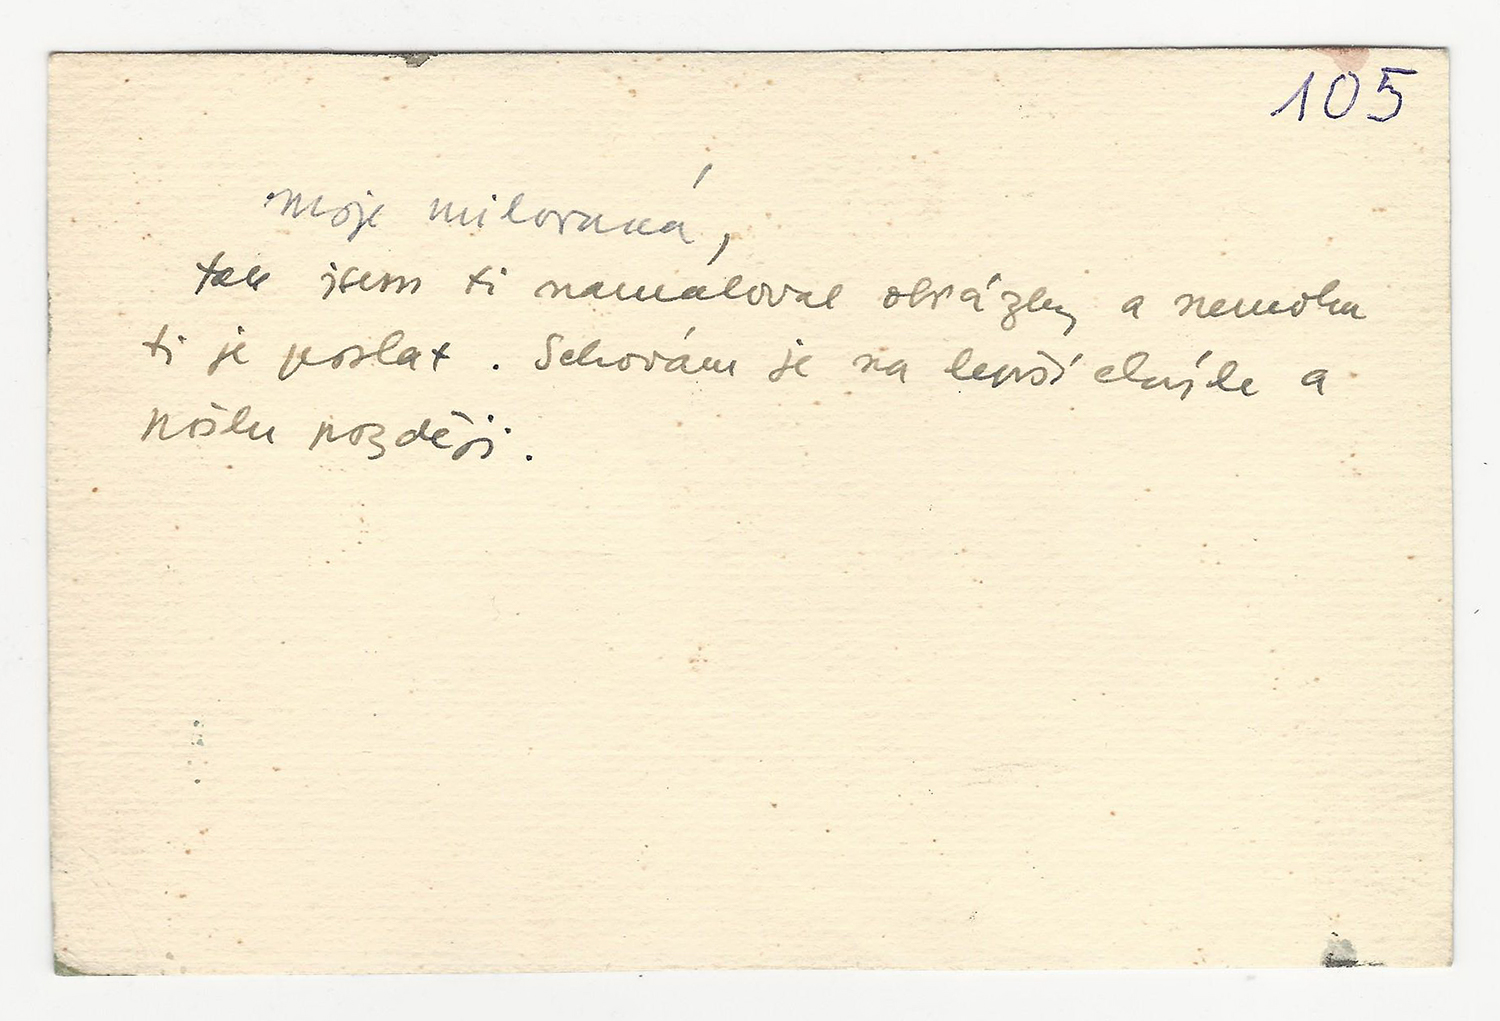 105
Moje milovaná,
tak jsem ti namáloval obrázky a nemohu
ti je poslat. Schovám je na lepší chvíle a
pošlu později.